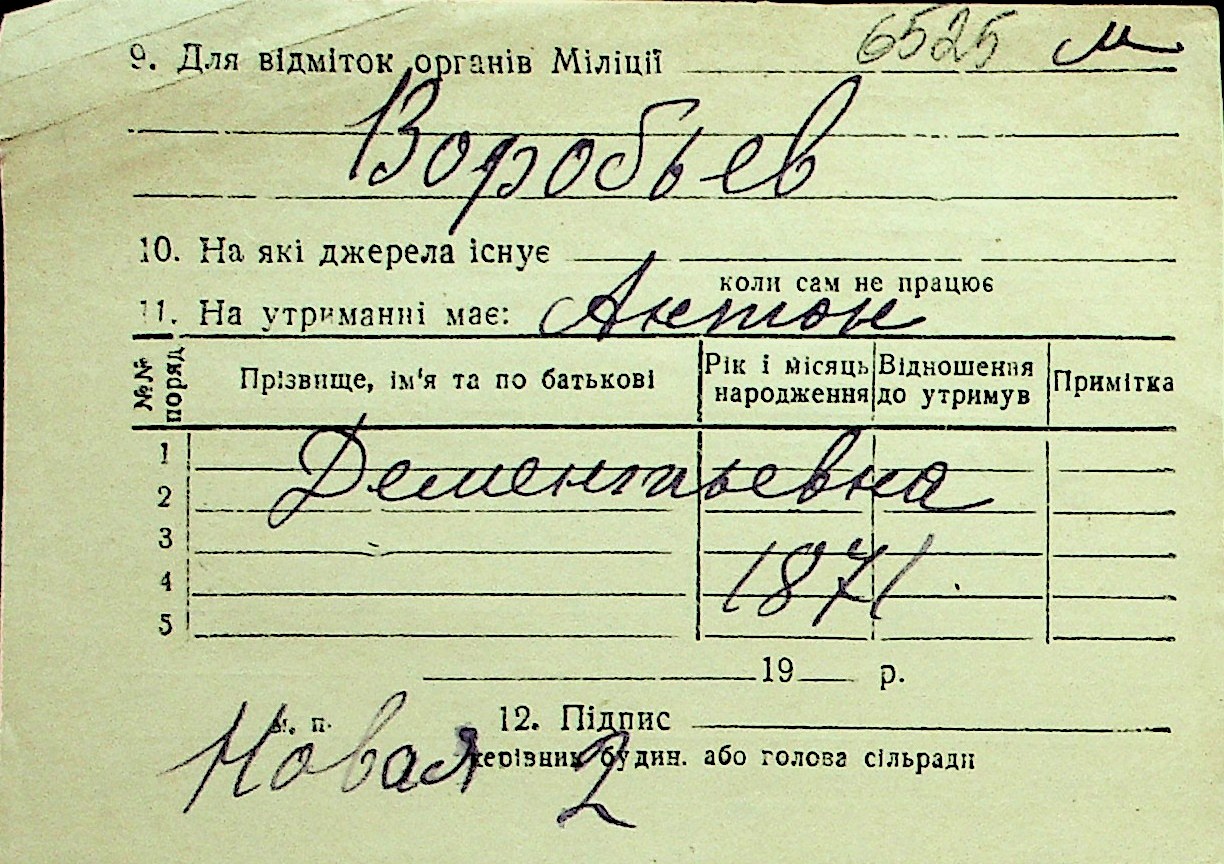 6525 м
9. Для відміток органів Міліції
Воробьев
10. На які джерела існує
коли сам не працює
11. На утриманні має: Антон
№№ поряд
Прізвище, ім'я та по батькові
Рік і місяць народження
Відношення до утримув
Примітка
1
Дементьевна
2
3
1871
4
5
19 р.
м. п.
12. Підпис
Новая 2
керівник будин. або голова сільради